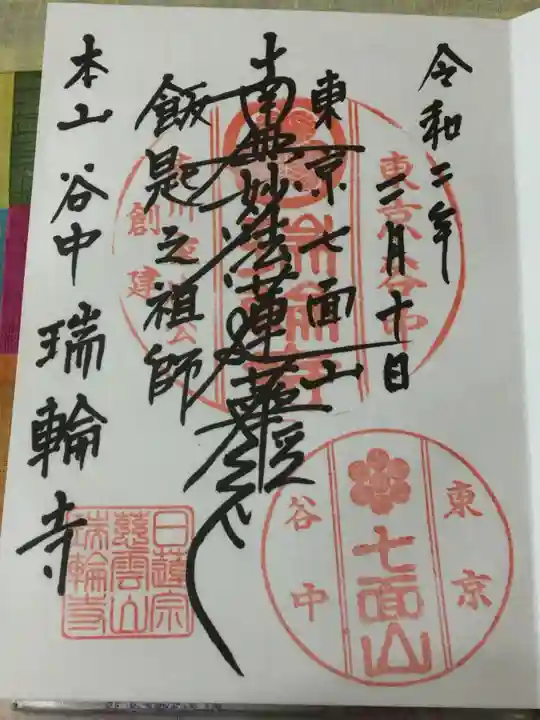 令和二年
三月十日
東京七面山
南無妙法蓮華経
飯匙之祖師
本山谷中瑞輪寺
東京谷中
瑞輪寺
創建
東京
七面山
谷中
日蓮宗
慈雲山
瑞輪寺